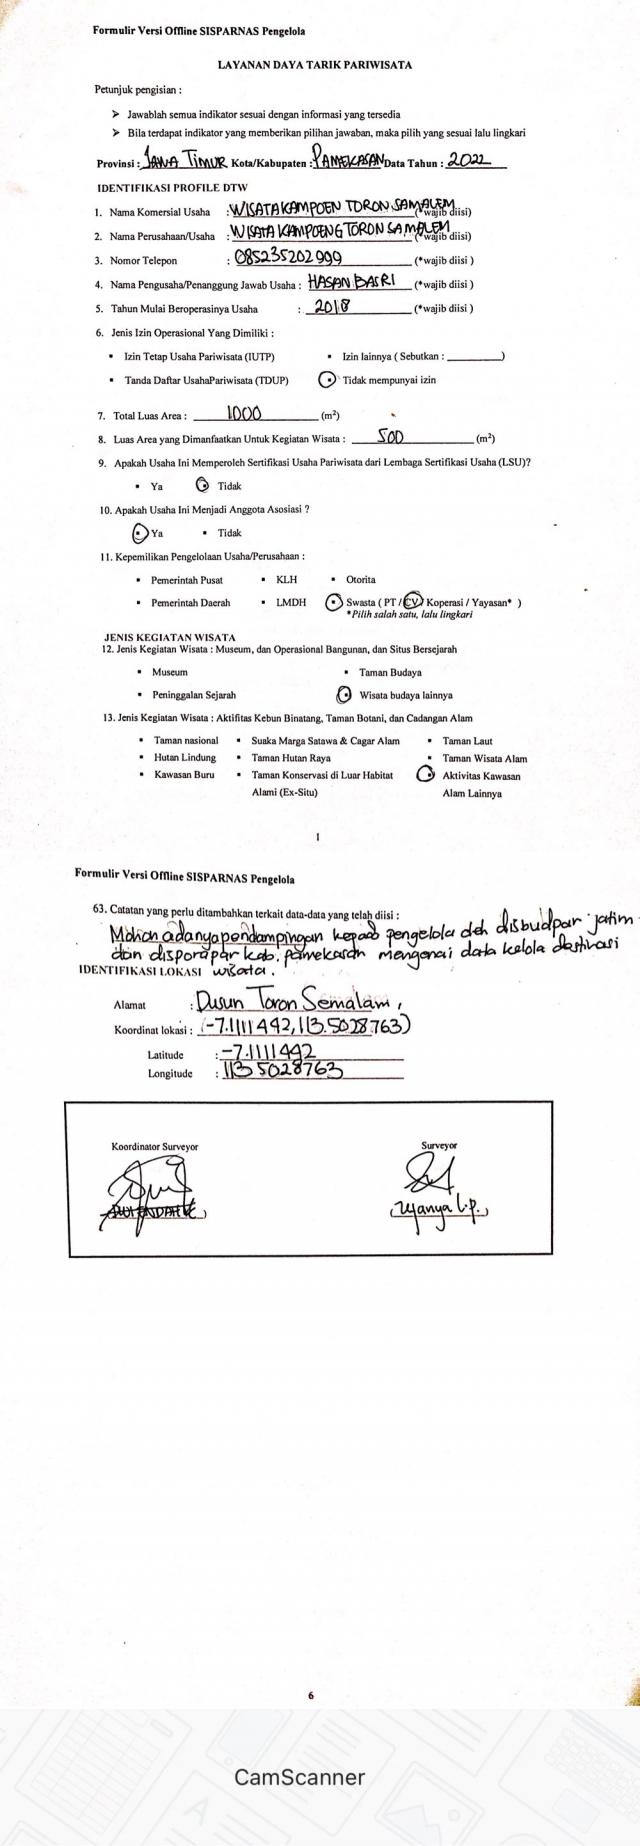 Formulir Versi Offline SISPARNAS Pengelola
LAYANAN DAYA TARIK PARIWISATA
Petunjuk pengisian :
➢ Jawablah semua indikator sesuai dengan informasi yang tersedia
➢ Bila terdapat indikator yang memberikan pilihan jawaban, maka pilih yang sesuai lalu lingkari
Provinsi : JAWA TIMUR Kota/Kabupaten : PAMEKASAN Data Tahun : 2022
IDENTIFIKASI PROFILE DTW
1. Nama Komersial Usaha : WISATA KAMPOEN TORON SAMALEM (*wajib diisi)
2. Nama Perusahaan/Usaha : WISATA KAMPOENG TORON SAMALEM (*wajib diisi)
3. Nomor Telepon : 085235202999 (*wajib diisi )
4. Nama Pengusaha/Penanggung Jawab Usaha : HASAN BASRI (*wajib diisi )
5. Tahun Mulai Beroperasinya Usaha : 2018 (*wajib diisi )
6. Jenis Izin Operasional Yang Dimiliki :
▪ Izin Tetap Usaha Pariwisata (IUTP) ▪ Izin lainnya ( Sebutkan : ________)
▪ Tanda Daftar UsahaPariwisata (TDUP) ▪ Tidak mempunyai izin
7. Total Luas Area : 1000 (m²)
8. Luas Area yang Dimanfaatkan Untuk Kegiatan Wisata : 500 (m²)
9. Apakah Usaha Ini Memperoleh Sertifikasi Usaha Pariwisata dari Lembaga Sertifikasi Usaha (LSU)?
▪ Ya ▪ Tidak
10. Apakah Usaha Ini Menjadi Anggota Asosiasi ?
▪ Ya ▪ Tidak
11. Kepemilikan Pengelolaan Usaha/Perusahaan :
▪ Pemerintah Pusat ▪ KLH ▪ Otorita
▪ Pemerintah Daerah ▪ LMDH ▪ Swasta ( PT / CV / Koperasi / Yayasan* )
*Pilih salah satu, lalu lingkari
JENIS KEGIATAN WISATA
12. Jenis Kegiatan Wisata : Museum, dan Operasional Bangunan, dan Situs Bersejarah
▪ Museum ▪ Taman Budaya
▪ Peninggalan Sejarah ▪ Wisata budaya lainnya
13. Jenis Kegiatan Wisata : Aktifitas Kebun Binatang, Taman Botani, dan Cadangan Alam
▪ Taman nasional ▪ Suaka Marga Satawa & Cagar Alam ▪ Taman Laut
▪ Hutan Lindung ▪ Taman Hutan Raya ▪ Taman Wisata Alam
▪ Kawasan Buru ▪ Taman Konservasi di Luar Habitat ▪ Aktivitas Kawasan
Alami (Ex-Situ) Alam Lainnya
1
Formulir Versi Offline SISPARNAS Pengelola
63. Catatan yang perlu ditambahkan terkait data-data yang telah diisi :
Mohon adanya pendampingan kepada pengelola oleh disbudpar jatim
dan disporapar kab. pamekasan mengenai data kelola destinasi
IDENTIFIKASI LOKASI wisata.
Alamat : Dusun Toron Semalam,
Koordinat lokasi : (-7.1111442, 113.5028763)
Latitude : -7.1111442
Longitude : 113.5028763
Koordinator Surveyor Surveyor
L.P.
6
CamScanner